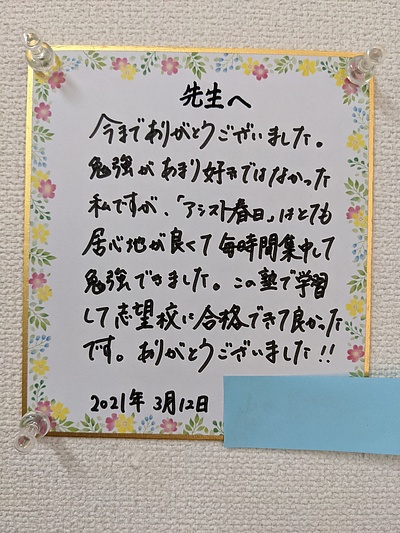 先生へ
今までありがとうございました。
勉強があまり好きではなかった
私ですが、「アシスト春日」はとても
居心地が良くて毎時間集中して
勉強できました。この塾で学習
して志望校に合格できて良かった
です。ありがとうございました!!
2021年 3月12日